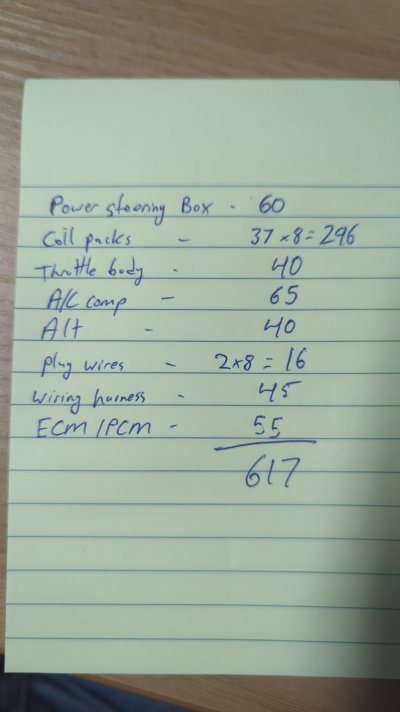 Power steering Box - 60
Coil packs - 37 x 8 = 296
Throttle body - 40
A/C comp - 65
Alt - 40
Plug wires - 2x8 = 16
Wiring harness - 45
ECM/PCM - 55
617